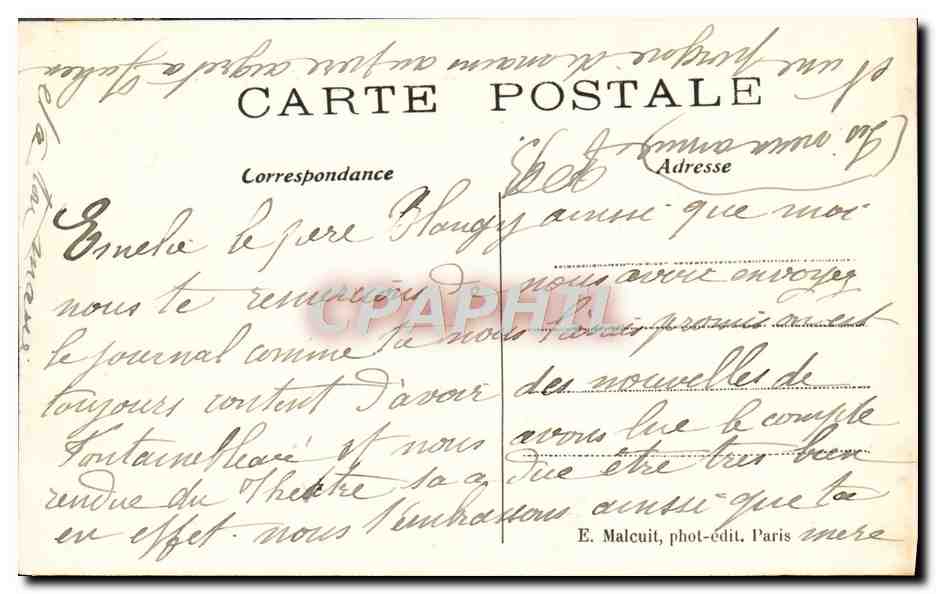 CARTE POSTALE
Correspondance
Adresse
Emelie le pere Blangy ainsi que moi
nous te remercions de nous avoir envoyez
le journal comme ta nous l'avais promis avest
toujours content d'avoir des nouvelles de
Fontainebleau et nous avons lue le compte
rendue du Théatre sa a due être tres bien
en effet. nous t'embrassons ainsi que ta
mere
et ta
et une
au pere
E. Malcuit, phot-édit. Paris
CPAPHIL